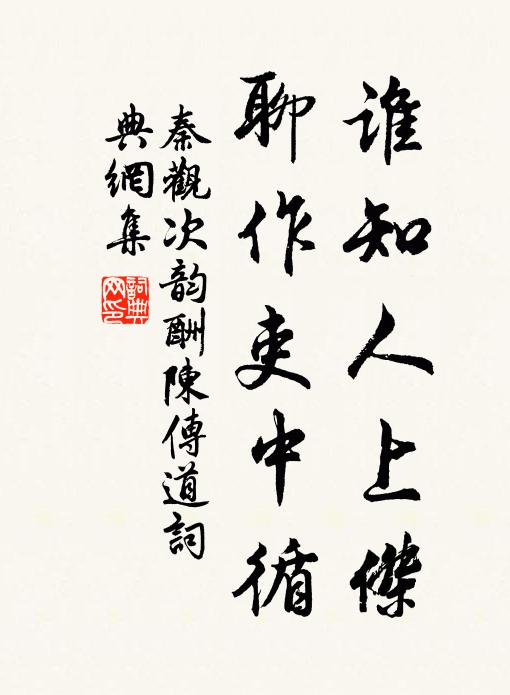 誰知人上傑
聊作吏中循
秦觀次韵酬陳傳道詞
典網集
詞典網印